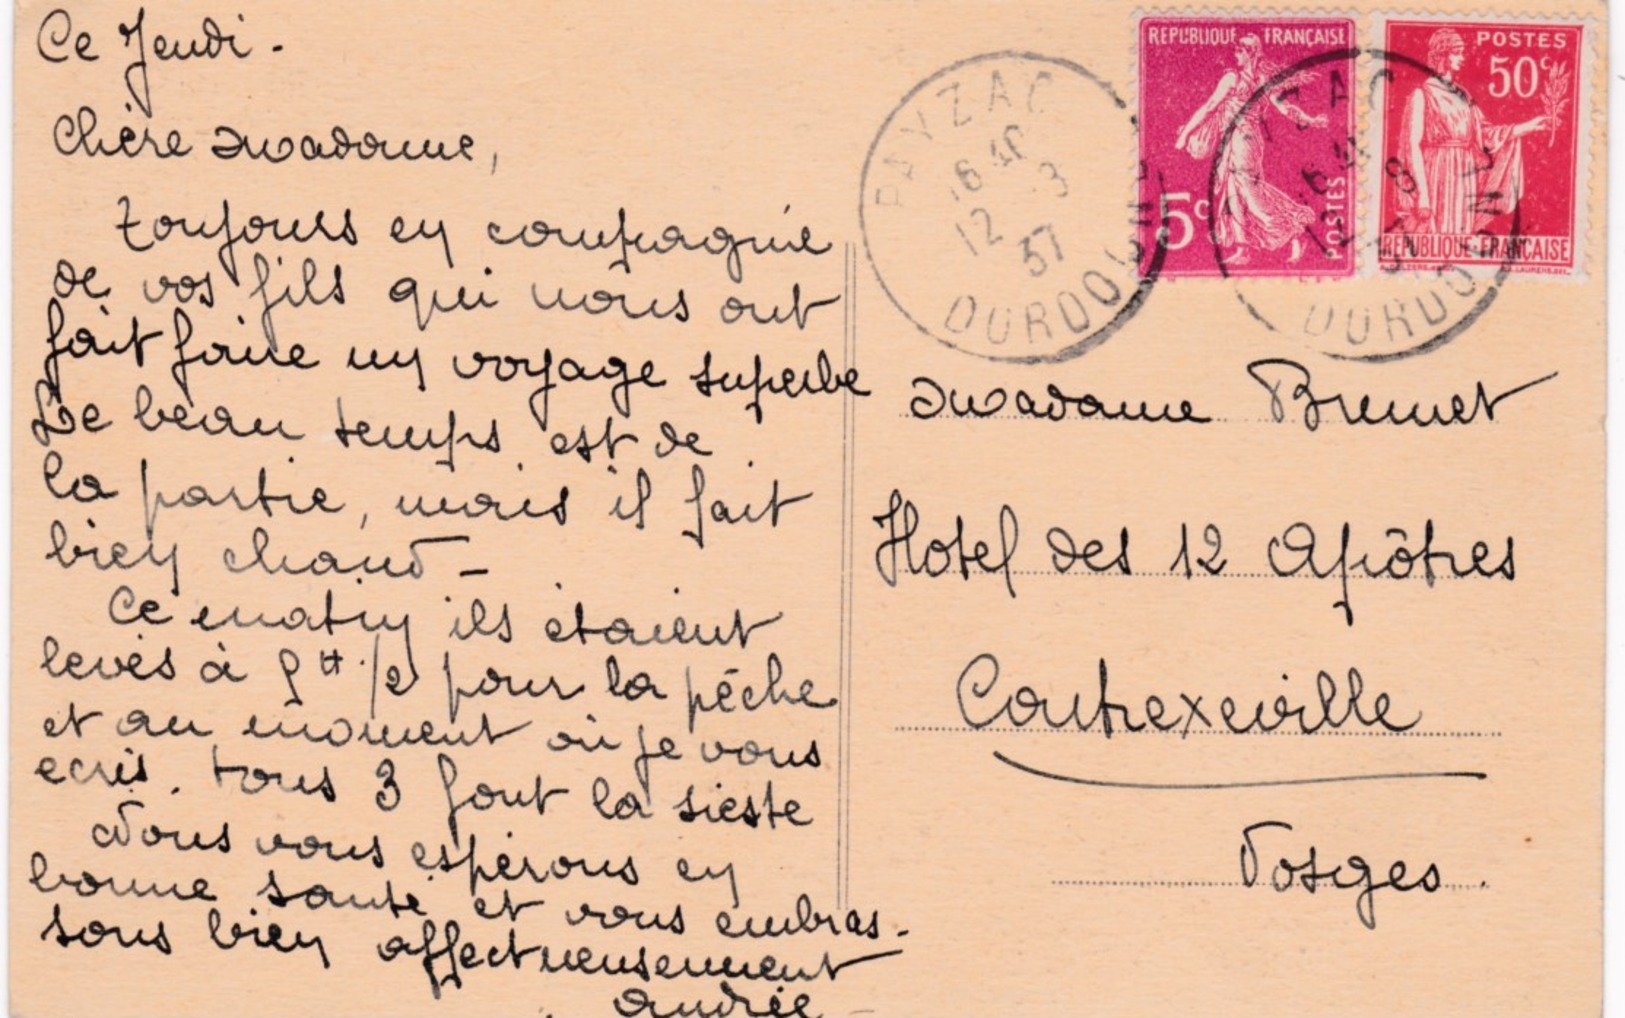 Ce Jeudi.
Chère Madame,
Toujours en compagnie
de vos fils qui nous ont
fait faire un voyage superbe
Le beau temps est de
la partie, mais il fait
bien chaud -
Ce matin ils étaient
levés à 5 H 1/2 pour la pêche
et au moment où je vous
ecris. tous 3 font la sieste
Nous vous espérons en
bonne santé et vous embras-
sons bien affectueusement
Andrée
REPUBLIQUE FRANÇAISE
5c
POSTES
POSTES
50c
REPUBLIQUE FRANÇAISE
PAYZAC
16 45
12 -8
37
DORDOGNE
Madame Brunet
Hotel des 12 Apôtres
Contrexeville
Vosges.